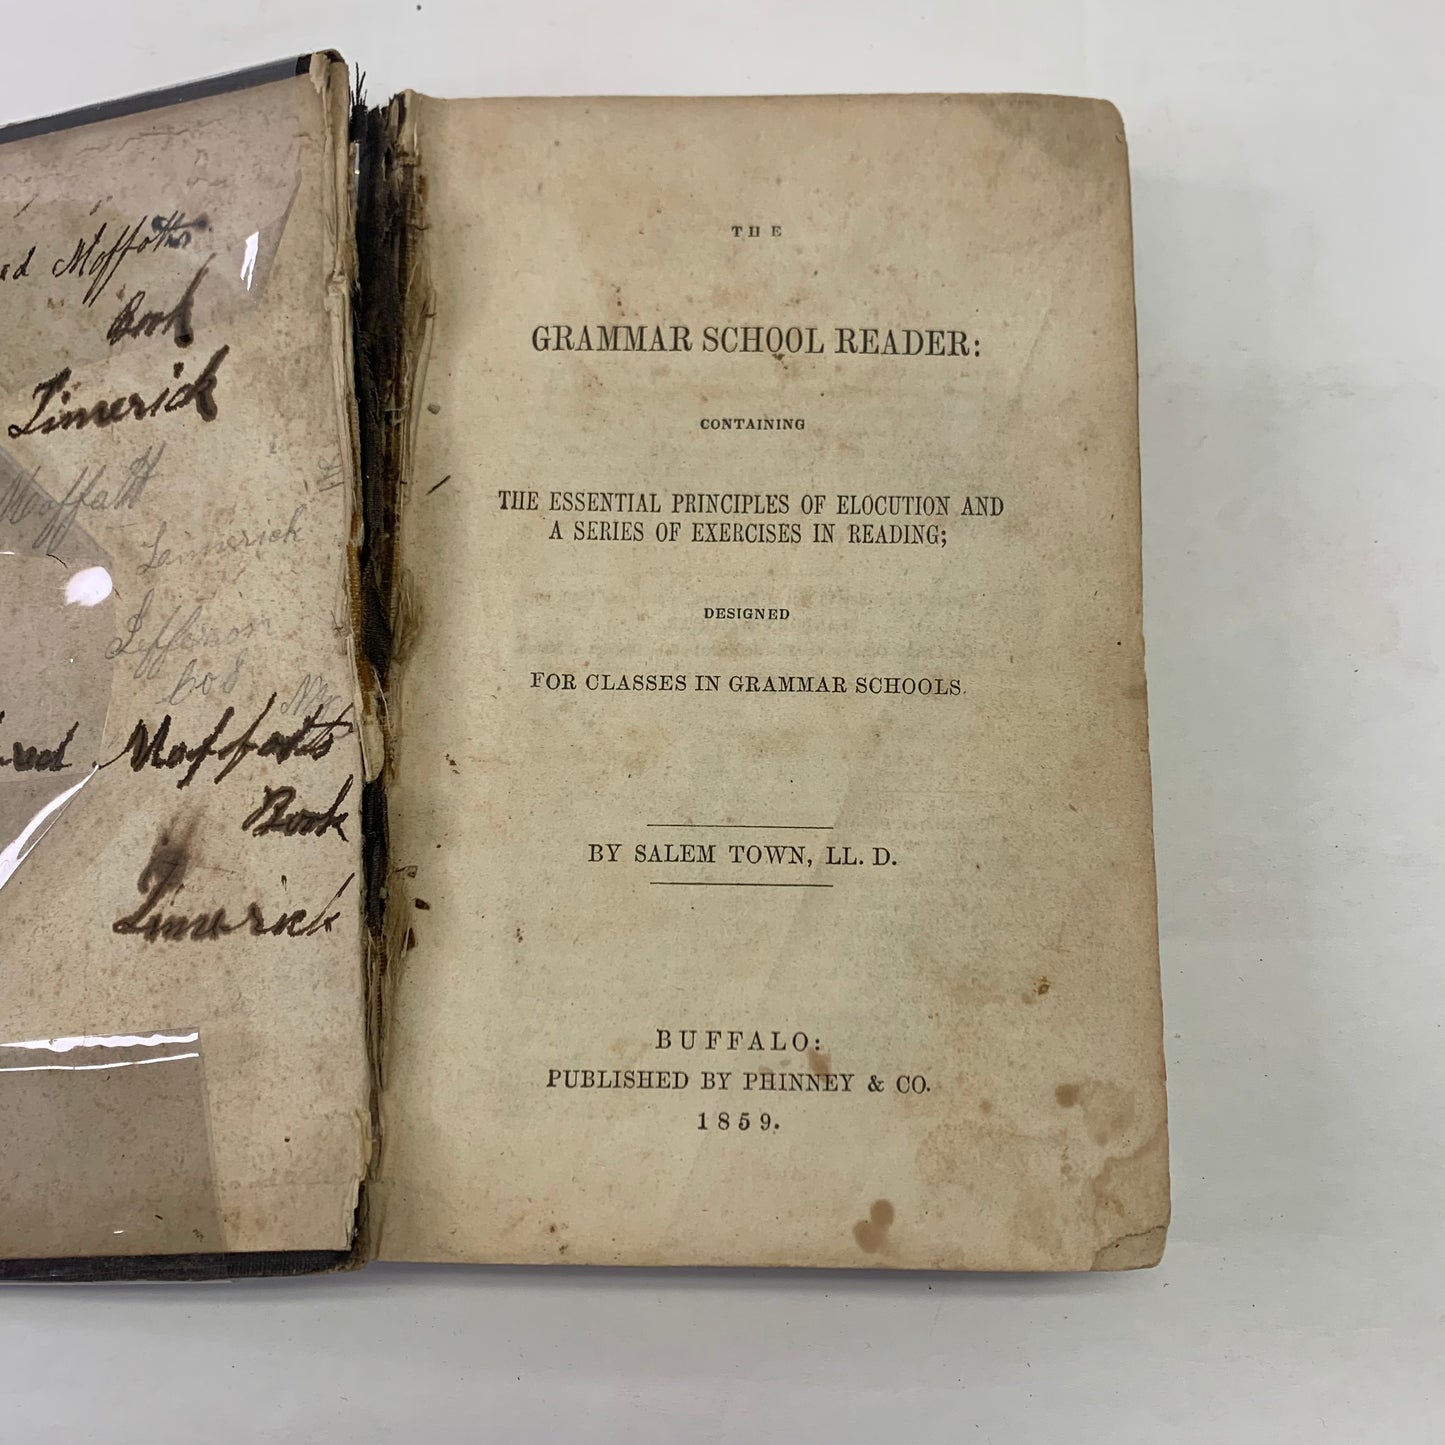 Moffatts
Book
Limerick
Moffatt
Limerick
Jefferson
Co
NY
Moffatts
Book
Limerick
THE
GRAMMAR SCHOOL READER:
CONTAINING
THE ESSENTIAL PRINCIPLES OF ELOCUTION AND
A SERIES OF EXERCISES IN READING;
DESIGNED
FOR CLASSES IN GRAMMAR SCHOOLS.
BY SALEM TOWN, LL. D.
BUFFALO:
PUBLISHED BY PHINNEY & CO.
1859.